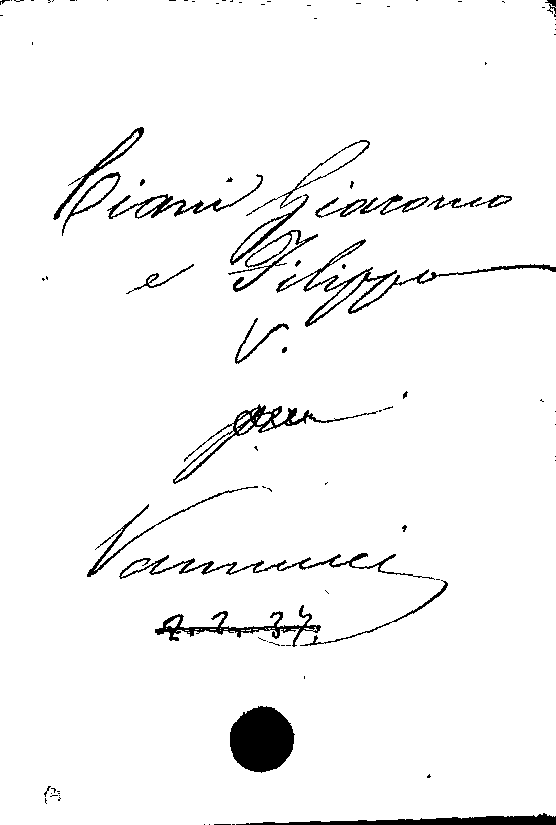 Ciani Giacomo
e Filippo
V.
Vannucci
2.2.34.